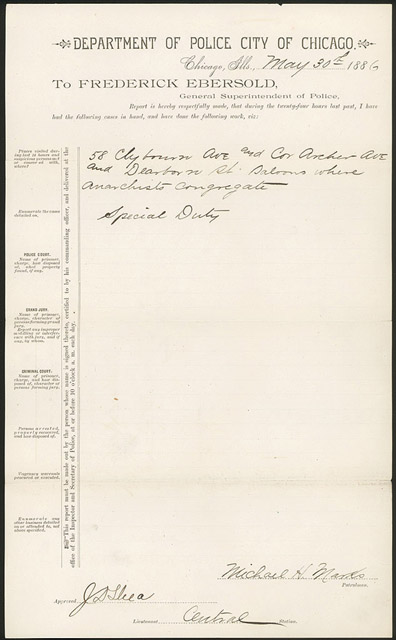 DEPARTMENT OF POLICE CITY OF CHICAGO.
Chicago, Ills., May 30th 1886
To FREDERICK EBERSOLD,
General Superintendent of Police,
Report is hereby respectfully made, that during the twenty-four hours last past, I have
had the following cases in hand, and have done the following work, viz:
58 Clybourn Ave and Cor Archer Ave
and Dearborn St. Saloons where
Anarchists congregate
Special Duty
Enumerate the cases
detailed on.
POLICE COURT.
Name of prisoner,
charge, how disposed
of, what property
found, if any.
GRAND JURY.
Name of prisoner,
charge, character of
persons forming grand
jury.
CRIMINAL COURT.
Name of prisoner,
charge, and how disposed
of, character of
persons forming jury.
Persons arrested,
property recovered,
and how disposed of.
Vagrancy warrants
procured or executed.
Enumerate any
other business detailed
on or attended to, not
above specified.
This report must be made out by the person whose name is signed thereto, certified to by his commanding officer, and delivered at the
office of the Inspector and Secretary of Police, at or before 10 o'clock a. m. each day.
Michael H. Marks
Patrolman.
Approved, J D Shea
Lieutenant Central Station.